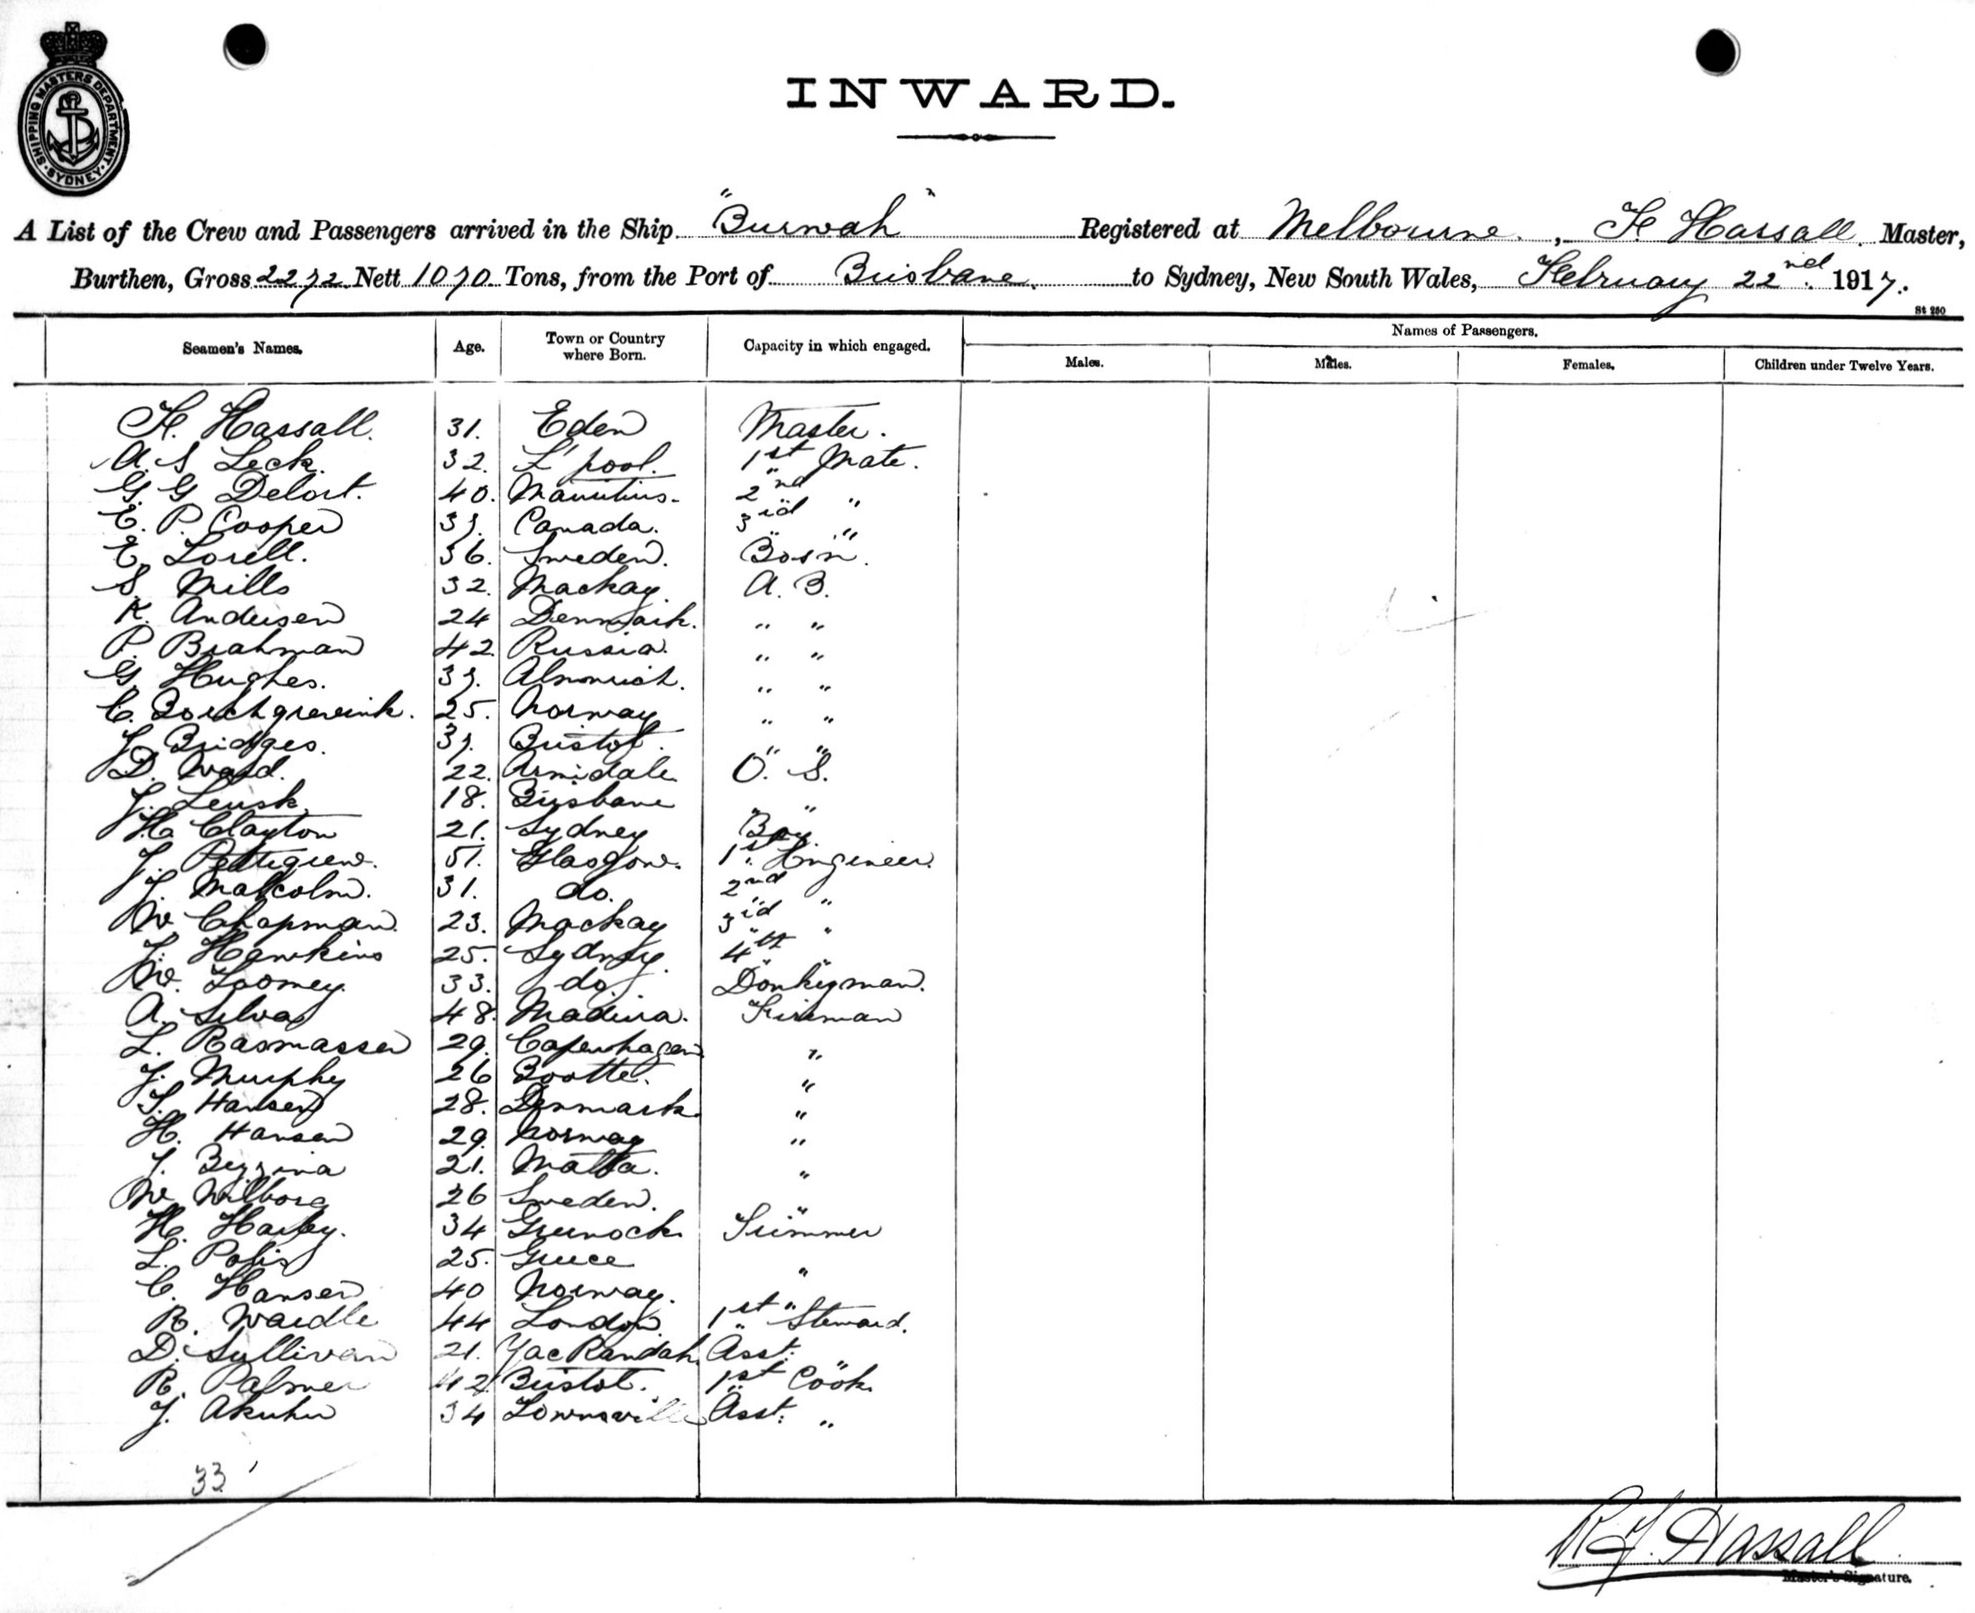 SHIPPING MASTERS DEPARTMENT
· SYDNEY ·
INWARD.
A List of the Crew and Passengers arrived in the Ship "Burwah" Registered at Melbourne, H Hassall. Master,
Burthen, Gross 2272 Nett 1070. Tons, from the Port of Brisbane. to Sydney, New South Wales, February 22nd. 1917.
St 250
Seamen's Names. Age. Town or Country where Born. Capacity in which engaged. Names of Passengers.
Males. Males. Females. Children under Twelve Years.
H. Hassall. 31. Eden Master.
A. S Leck. 32. L'pool. 1st Mate.
G. G Delort. 40. Mauritius. 2nd "
E. P. Cooper 37. Canada. 3rd "
E. Lorell. 36. Sweden. Bosn.
S. Mills 32. Mackay. A. B.
K. Andersen 24 Denmark. " "
P. Brahman 42 Russia. " "
G. Hughes. 37. " "
C. Borchgrevink. 25. Norway " "
J. Bridges. 37. Bristol. " "
D. Ward. 22. Armidale O. S.
J. Leusk 18. Brisbane " "
H. Clayton 21. Sydney Boy.
J. Pettigrew. 51. Glasgow. 1st. Engineer.
J. Malcolm. 31. do. 2nd "
W. Chapman. 23. Mackay 3rd "
J. Hawkins 25. Sydney. 4th "
W. Toomey. 33. do. Donkeyman.
A. Silva 48. Madiera. Fireman
L. Rasmassen 29. Copenhagen "
J. Murphy 26 Bootle. "
S. Hansen 28. Denmark. "
H. Hansen 29. Norway "
J. Bezzina 21. Malta. "
W. Wilborg 26 Sweden. "
H. Harley. 34 Greenock. Trimmer
L. Polis 25. Greece "
C. Hansen 40 Norway. "
R. Wardle 44 London. 1st Steward.
D. Sullivan 21. Yac Randah. Asst. "
R. Palmer 42 Bristol. 1st Cook.
J. 34 Townsville Asst. "
33
R H. Hassall
Master's Signature.